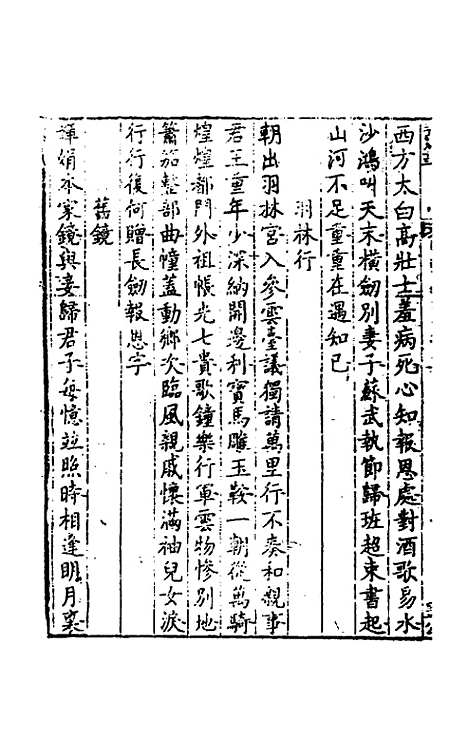 西方太白高壯士羞病死心知報恩處對酒歌易水
沙鴻叫天末橫劒別妻子蘇武執節歸班超束書起
山河不足重重在遇知已
羽林行
朝出羽林宮入參雲臺議獨請萬里行不奏和親事
君王重年少深納開邊利寶馬雕玉鞍一朝從萬騎
煌煌都門外祖帳光七貴歌鐘樂行軍雲物慘別地
簫笳整部曲幢蓋動鄉次臨風親戚懷滿袖兒女淚
行行復何贈長劒報恩字
舊鏡
嬋娟本家鏡與妻歸君子每憶並照時相逢明月裏